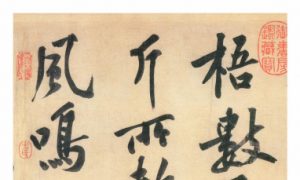 梧數
斤所
風鳴